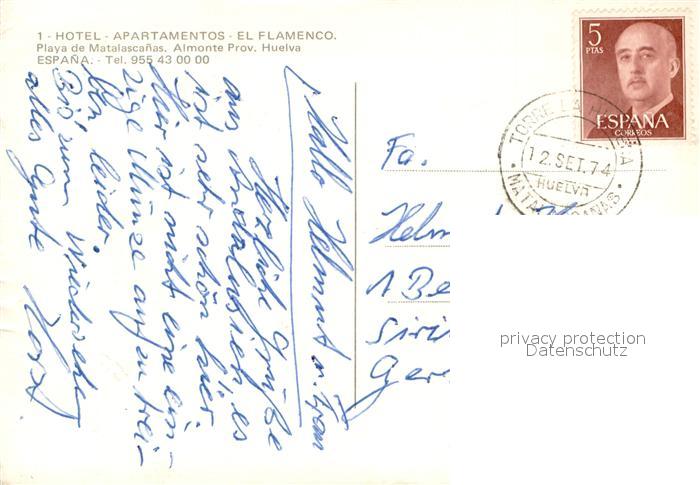 1 - HOTEL - APARTAMENTOS - EL FLAMENCO.
Playa de Matalascañas. Almonte Prov. Huelva
ESPAÑA. - Tel. 955 43 00 00
Hallo Helmut u. Frau
Herzliche Grüße
aus Andalusien, es
ist sehr schön hier.
Hier ist nicht eine ein-
zige Münze aufzutrei-
ben leider.
Bis zum Wiedersehen
alles Gute Horst
5
PTAS
ESPAÑA
CORREOS
TORRE LA HIGUERA
12.SET.74
HUELVA
MATALASCAÑAS
Fa.
Helm
1 Be
Ger
privacy protection
Datenschutz